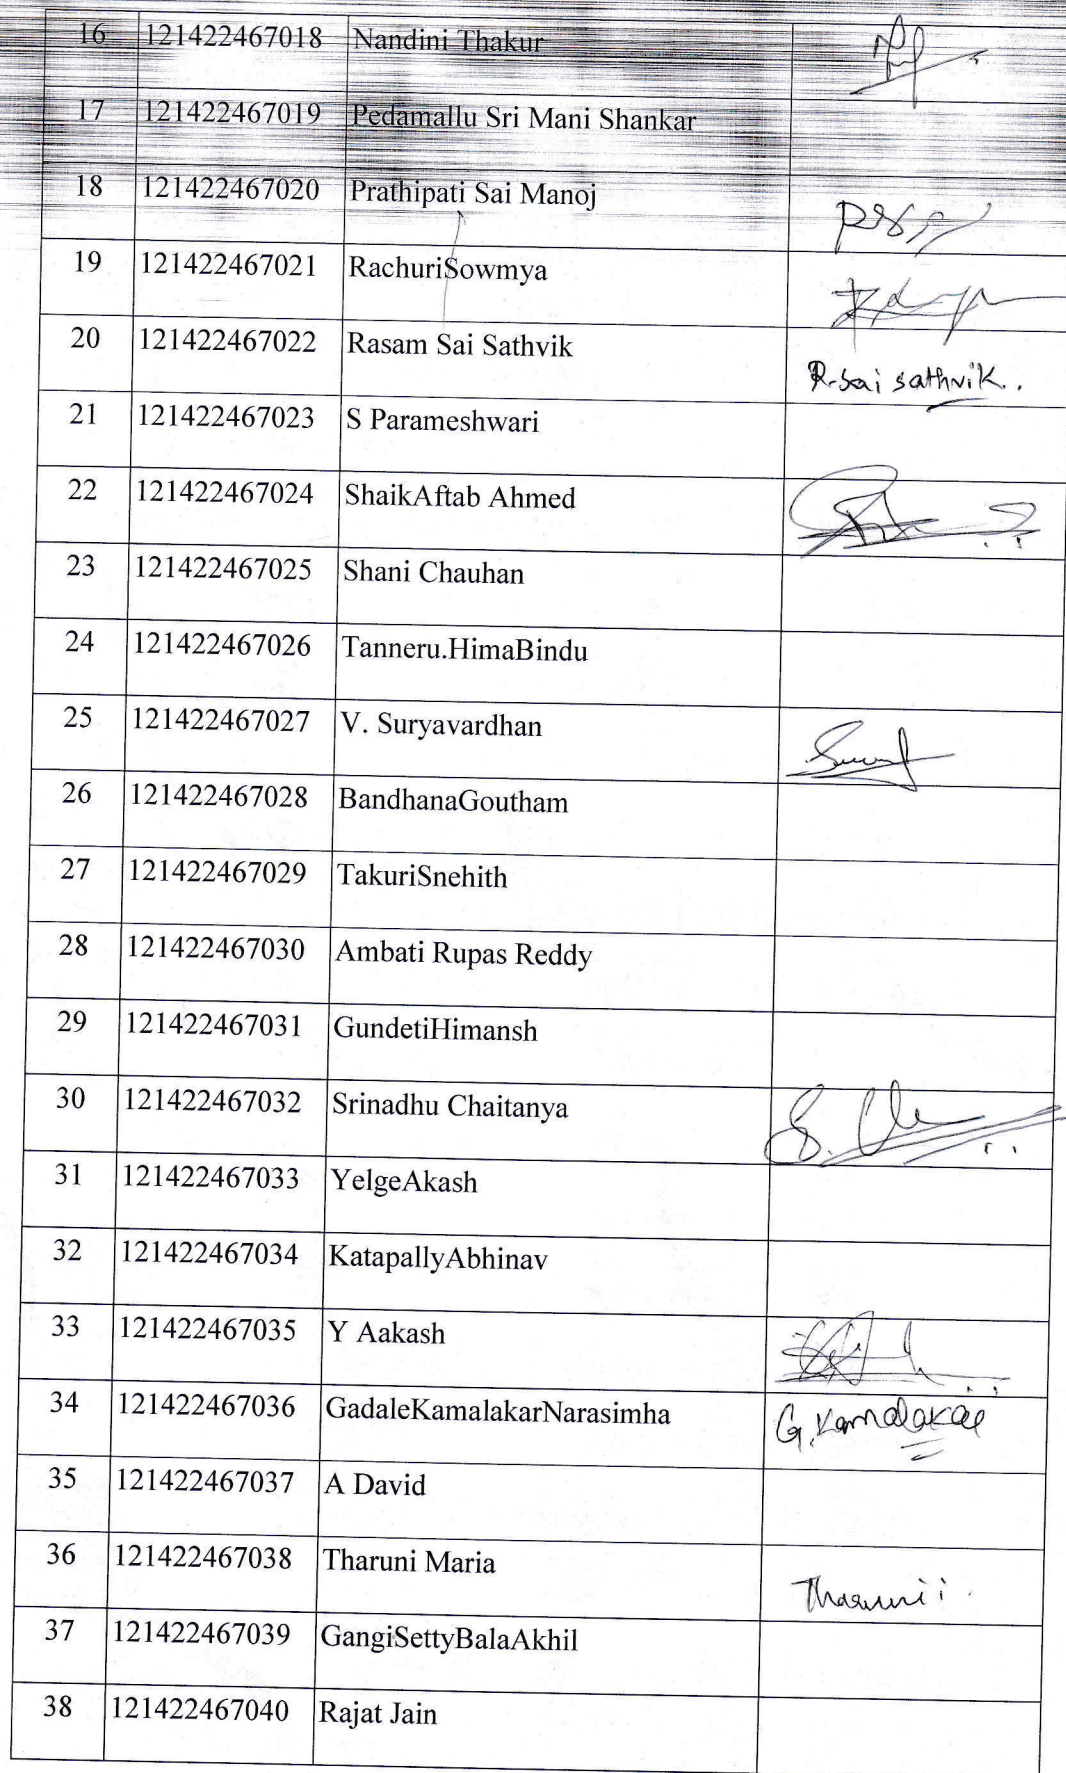 16 121422467018 Nandini Thakur
17 121422467019 Pedamallu Sri Mani Shankar
18 121422467020 Prathipati Sai Manoj
19 121422467021 RachuriSowmya
20 121422467022 Rasam Sai Sathvik R.sai sathvik..
21 121422467023 S Parameshwari
22 121422467024 ShaikAftab Ahmed
23 121422467025 Shani Chauhan
24 121422467026 Tanneru.HimaBindu
25 121422467027 V. Suryavardhan
26 121422467028 BandhanaGoutham
27 121422467029 TakuriSnehith
28 121422467030 Ambati Rupas Reddy
29 121422467031 GundetiHimansh
30 121422467032 Srinadhu Chaitanya
31 121422467033 YelgeAkash
32 121422467034 KatapallyAbhinav
33 121422467035 Y Aakash
34 121422467036 GadaleKamalakarNarasimha G.Kamalakar
35 121422467037 A David
36 121422467038 Tharuni Maria Tharuni
37 121422467039 GangiSettyBalaAkhil
38 121422467040 Rajat Jain